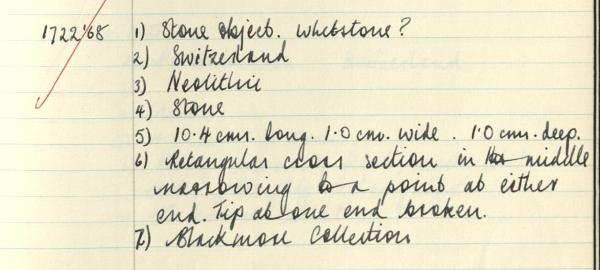 1722'68 1) Stone Object. Whetstone?
2) Switzerland
3) Neolithic
4) Stone
5) 10.4 cms. long. 1.0 cms. wide. 1.0 cms. deep.
6) Retangular cross section in the middle
narrowing to a point at either
end. Tip at one end broken.
7) Blackmore Collection